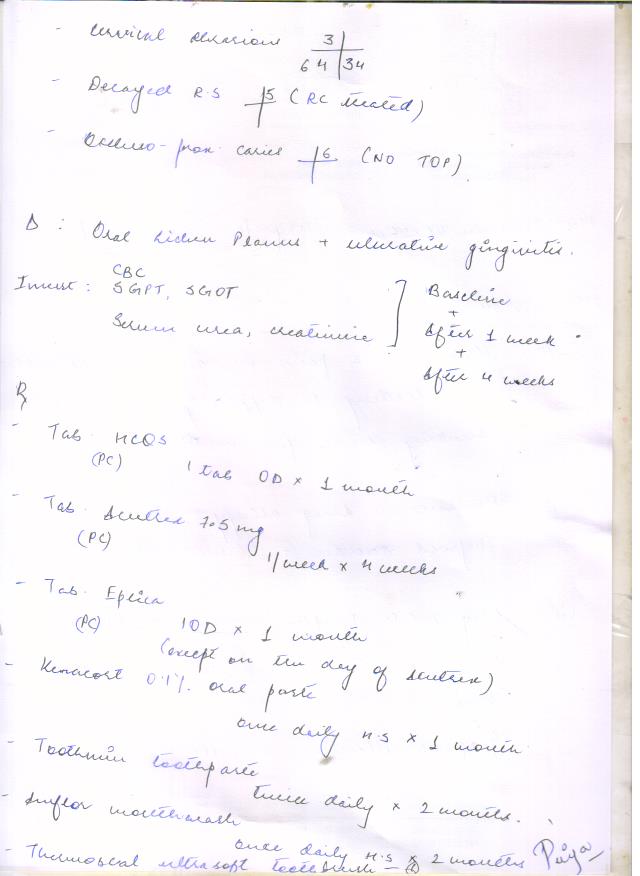 - Cervical abrasions 3
6 4 | 34
- Decayed R.S 5 (RC treated)
- Occluso-prox. caries 6 (NO TOP)
Δ : Oral Lichen Planus + ulcerative gingivitis.
CBC
Invest : SGPT, SGOT ] Baseline
+
Serum urea, creatinine After 1 week
+
After 4 weeks
℞
- Tab. HCQS
(PC) 1 tab OD × 1 month
- Tab. 7.5 mg
(PC) 1/week × 4 weeks
- Tab.
(PC) 1OD × 1 month
(except on the day of )
- Kenacort 0.1% oral paste
once daily H.S × 1 month
- toothpaste
twice daily × 2 months.
- mouthwash
once daily H.S × 2 months
- Thermoseal ultrasoft toothbrush